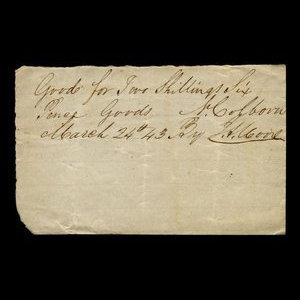 Goods for Two Shillings Six
Pence Goods N. Colborn
March 24th 43 By